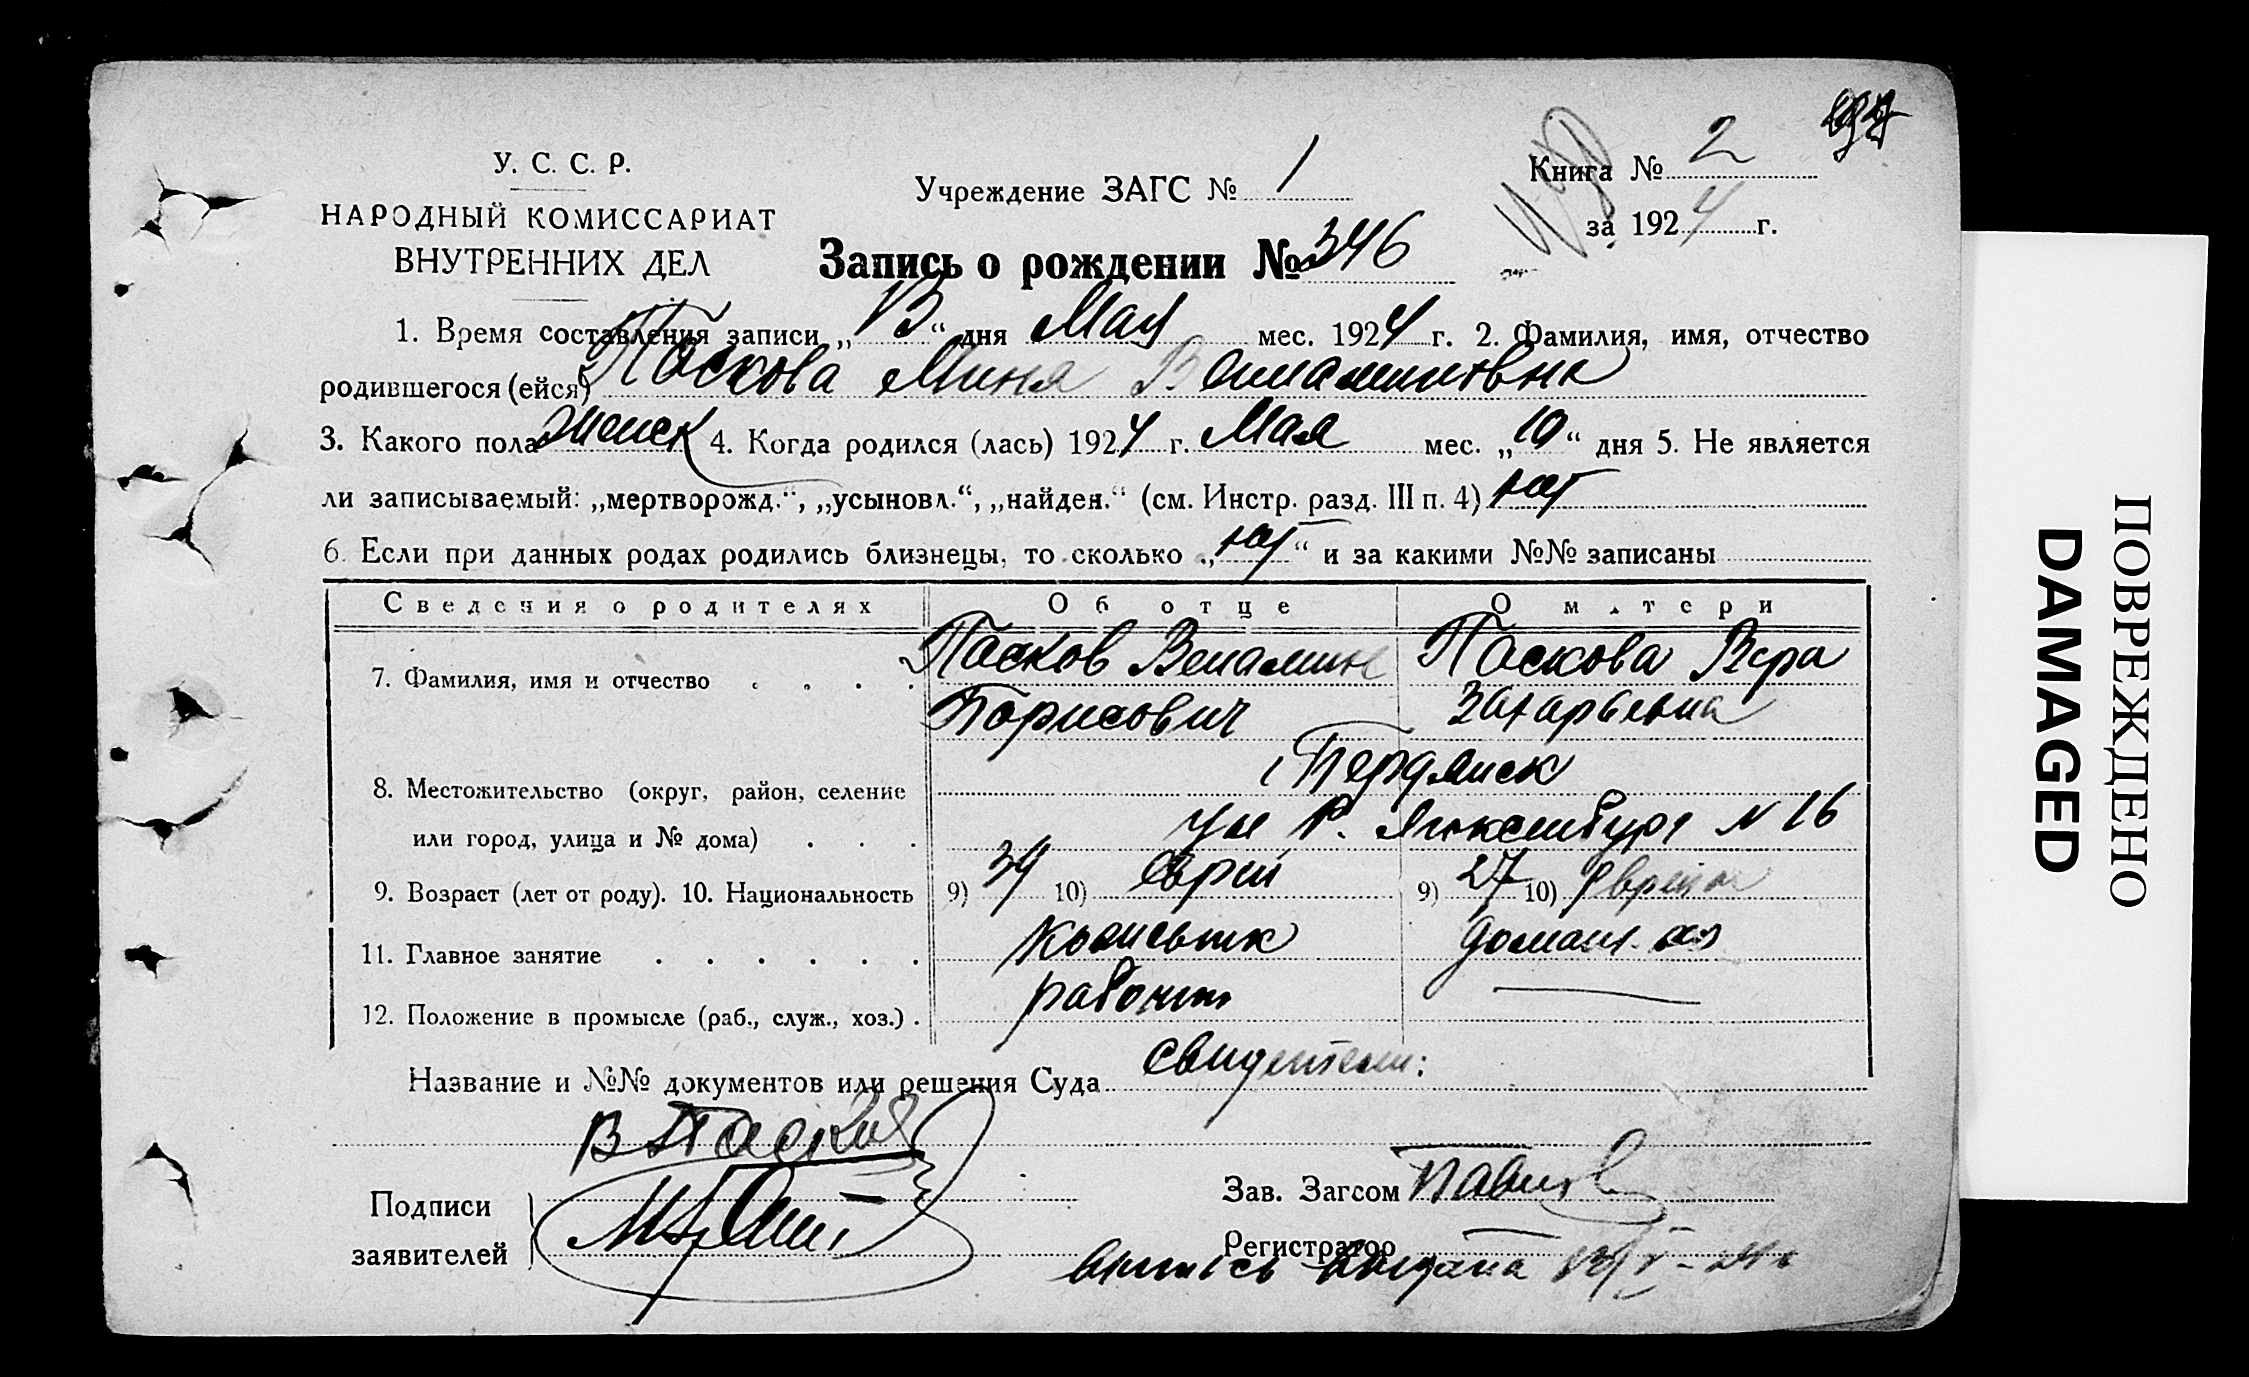 У. С. С. Р.
НАРОДНЫЙ КОМИССАРИАТ
ВНУТРЕННИХ ДЕЛ
Учреждение ЗАГС № 1
Книга № 2
за 1924 г.
Запись о рождении № 346
1. Время составления записи „13“ дня Мая мес. 1924 г. 2. Фамилия, имя, отчество
родившегося (ейся) Паскова Мина Вениаминовна
3. Какого пола женск 4. Когда родился (лась) 1924 г. Мая мес. „10“ дня 5. Не является
ли записываемый: „мертворожд.“, „усыновл.“, „найден.“ (см. Инстр. разд. III п. 4) нет
6. Если при данных родах родились близнецы, то сколько „нет“ и за какими №№ записаны
Сведения о родителях Об отце О матери
7. Фамилия, имя и отчество . . . . Пасков Вениамин Паскова Вера
Борисович Захарьевна
8. Местожительство (округ, район, селение Бердянск
или город, улица и № дома) . . . ул Р. Люксембург N 16
9. Возраст (лет от роду). 10. Национальность 9) 34 10) еврей 9) 27 10) еврейка
11. Главное занятие . . . . . . домашн. хоз
12. Положение в промысле (раб., служ., хоз.) .
Название и №№ документов или решения Суда свидетели:
В Пасков
Подписи
заявителей
Зав. Загсом
Регистратор
выпись выдана 13/V-24 г
ПОВРЕЖДЕНО
DAMAGED